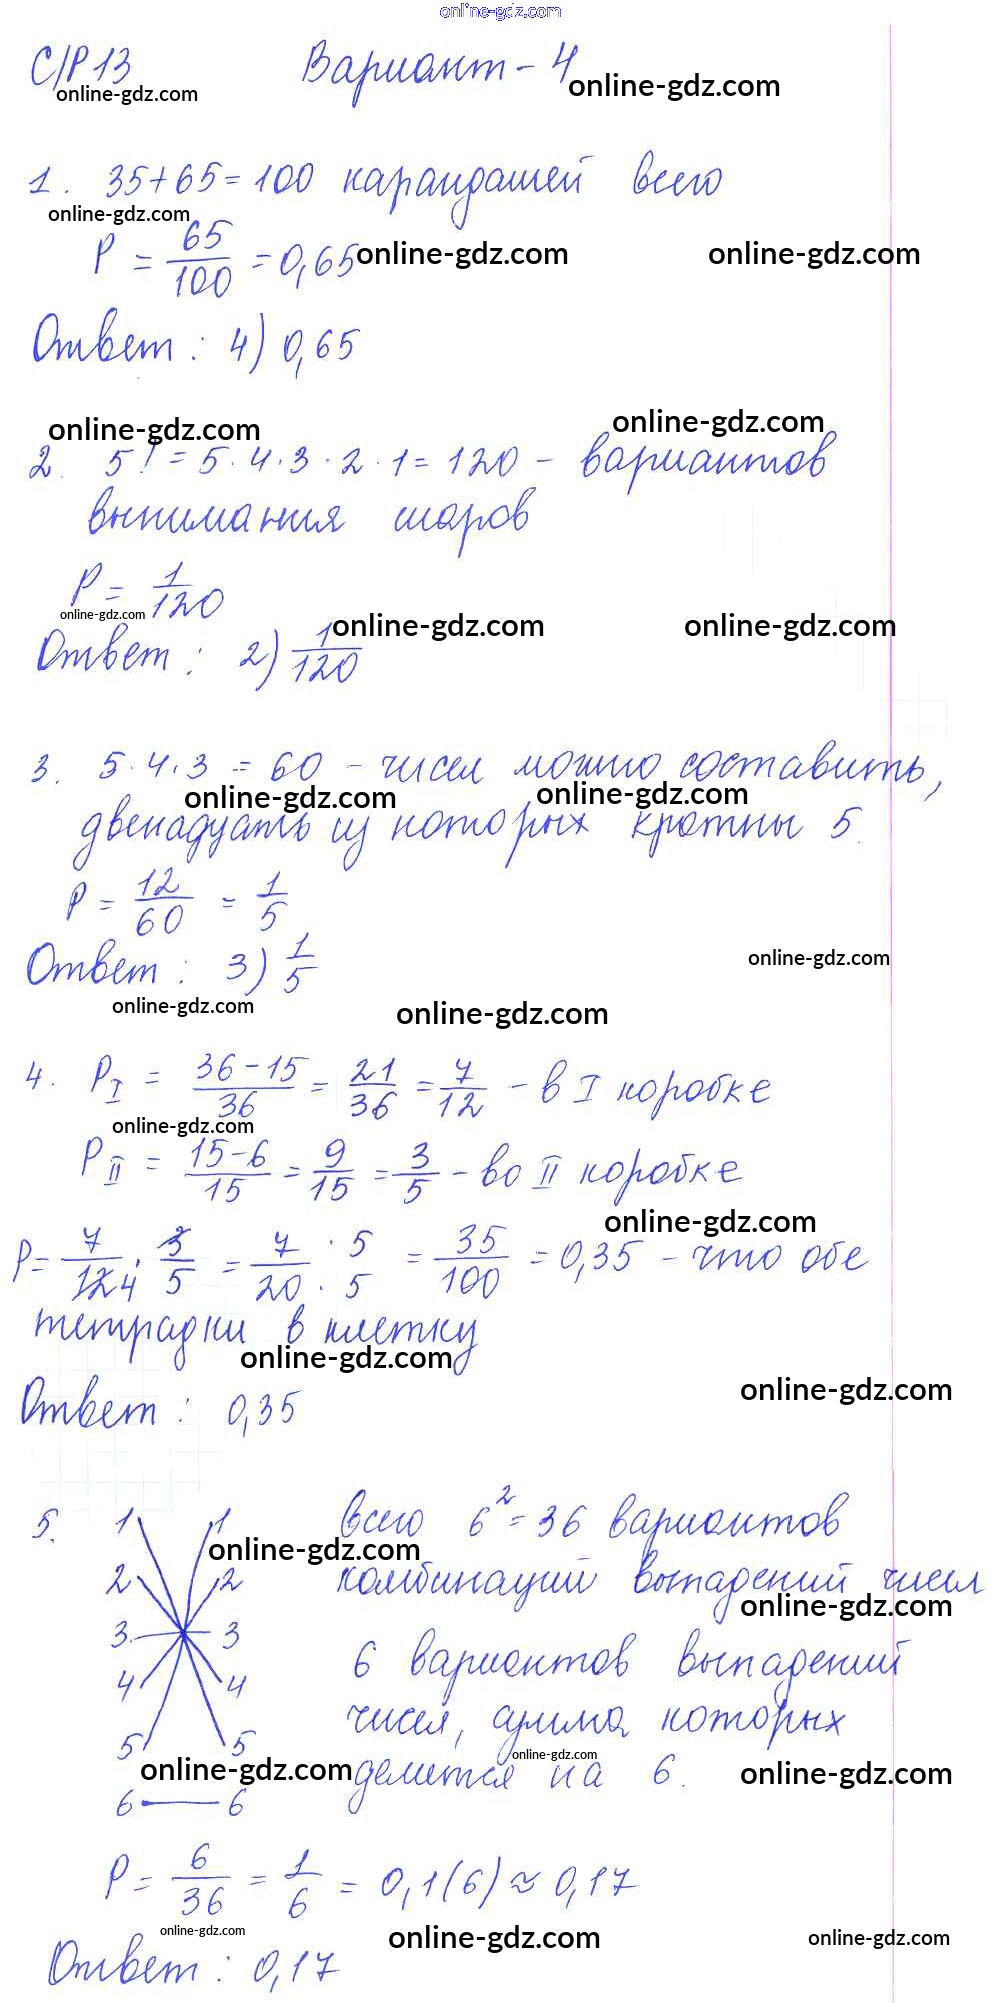 online-gdz.com
С/Р 13 Вариант - 4
online-gdz.com online-gdz.com
1. 35+65=100 карандашей всего
online-gdz.com
P = 65/100 = 0,65 online-gdz.com online-gdz.com
Ответ: 4) 0,65
online-gdz.com online-gdz.com
2. 5! = 5·4·3·2·1 = 120 - вариантов
вынимания шаров
P = 1/120
online-gdz.com online-gdz.com online-gdz.com
Ответ: 2) 1/120
3. 5·4·3 = 60 - чисел можно составить,
online-gdz.com online-gdz.com
двенадцать из которых кратны 5.
P = 12/60 = 1/5
Ответ: 3) 1/5 online-gdz.com
online-gdz.com online-gdz.com
4. P I = 36-15/36 = 21/36 = 7/12 - в I коробке
online-gdz.com
P II = 15-6/15 = 9/15 = 3/5 - во II коробке
online-gdz.com
P = 7/12 4 · 3/5 = 7/20 · 5/5 = 35/100 = 0,35 - что обе
тетрадки в клетку
online-gdz.com online-gdz.com
Ответ: 0,35
5. 1 1 Всего 6² = 36 вариантов
online-gdz.com
2 2 комбинаций выпадений чисел
online-gdz.com
3 3 6 вариантов выпадений
4 4 чисел, сумма которых
5 5 online-gdz.com
online-gdz.com делится на 6. online-gdz.com
6 6
P = 6/36 = 1/6 = 0,1(6) ≈ 0,17
online-gdz.com online-gdz.com online-gdz.com
Ответ: 0,17